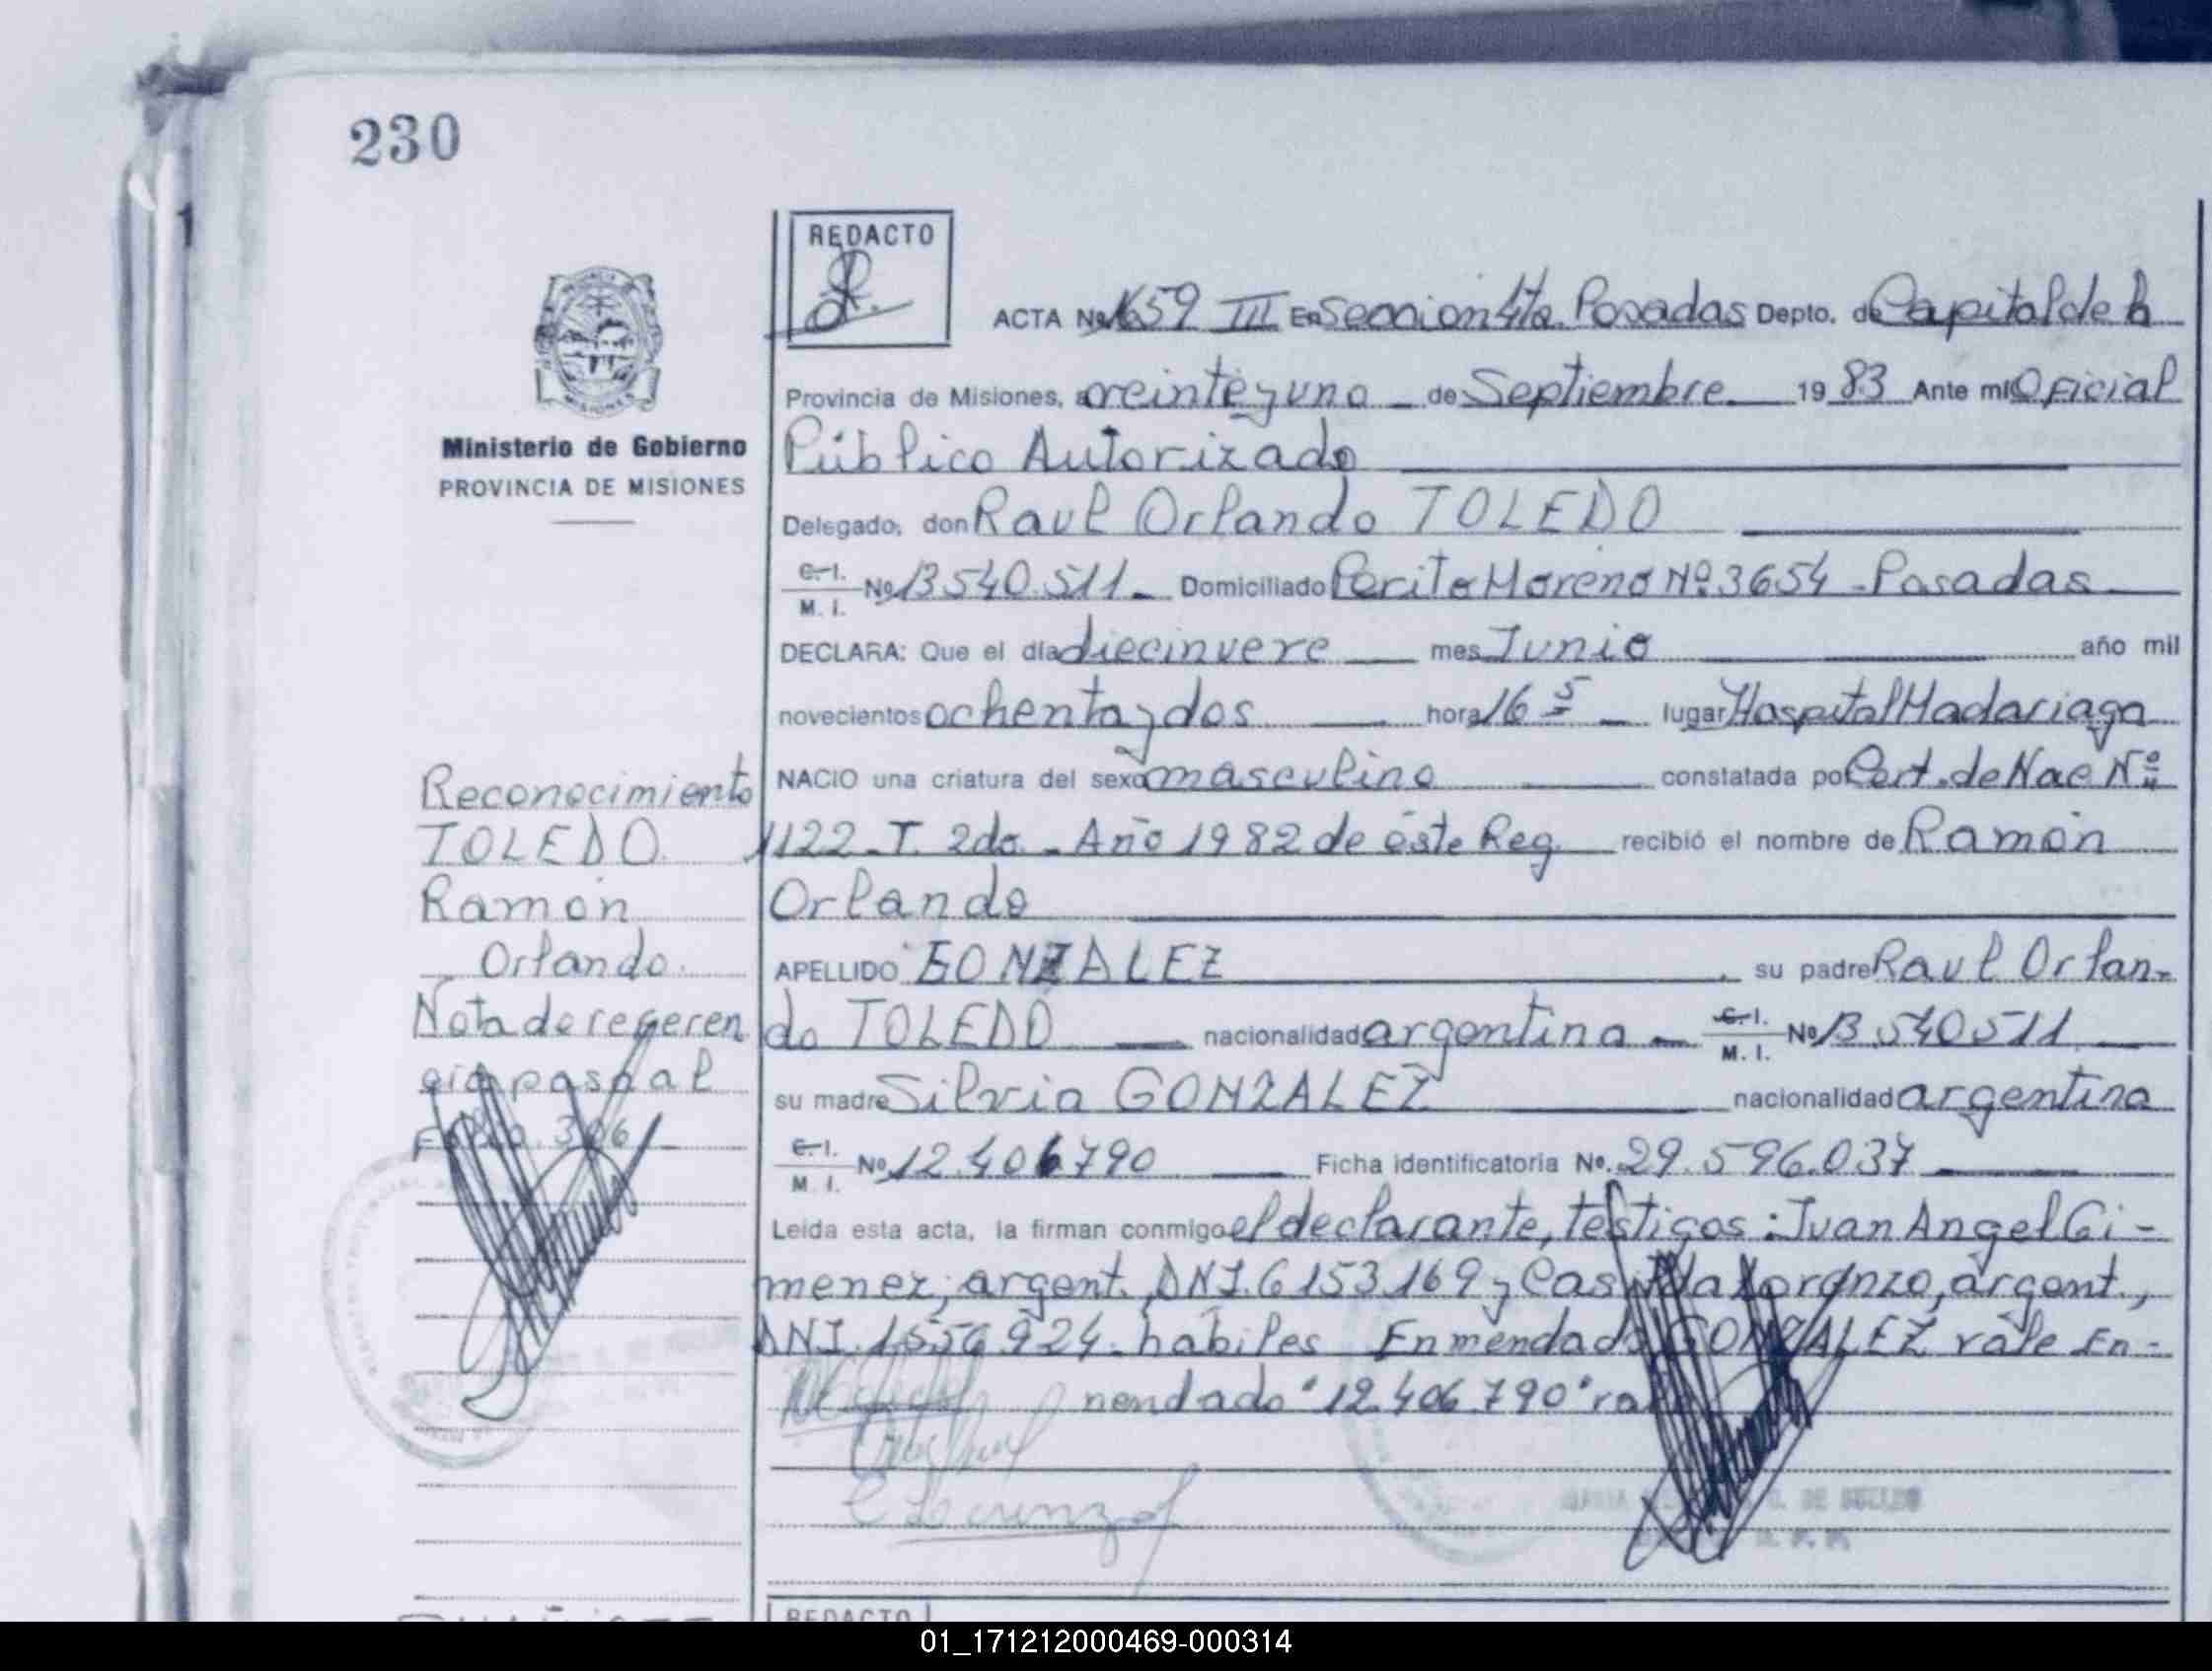 230
REDACTO
ACTA No 1659 III En Seccion 4ta. Posadas Depto. de Capital de la
Provincia de Misiones, a veinte y uno de Septiembre 19 83 Ante mi Oficial
Ministerio de Gobierno
PROVINCIA DE MISIONES
Público Autorizado
Delegado, don Raul Orlando TOLEDO
C.I. M.I. No 13.540.511 Domiciliado Perito Moreno Nº 3654 - Posadas
DECLARA: Que el dia diecinueve mes Junio año mil
novecientos ochenta y dos hora 16 5 lugar Hospital Madariaga
NACIO una criatura del sexo masculino constatada por Cert. de Nac Nº
1122 - T. 2do. - Año 1982 de éste Reg. recibió el nombre de Ramón
Orlando
APELLIDO GONZALEZ su padre Raul Orlan-
do TOLEDO nacionalidad argentina C.I. M.I. No 13.540511
su madre Silvia GONZALEZ nacionalidad argentina
C.I. M.I. No 12.406790 Ficha identificatoria No. 29.596.037
Leida esta acta, la firman conmigo el declarante, testigos: Juan Angel Gi-
menez, argent. DNI. 6153.169 y Casilda Lorenzo, argent.,
DNI. 1556.924. habiles Enmendado GONZALEZ vale En-
mendado "12.406.790" vale
Reconocimiento
TOLEDO
Ramón
Orlando.
Nota de referen
cia pasa al
Folio. 306
REDACTO
01_171212000469-000314